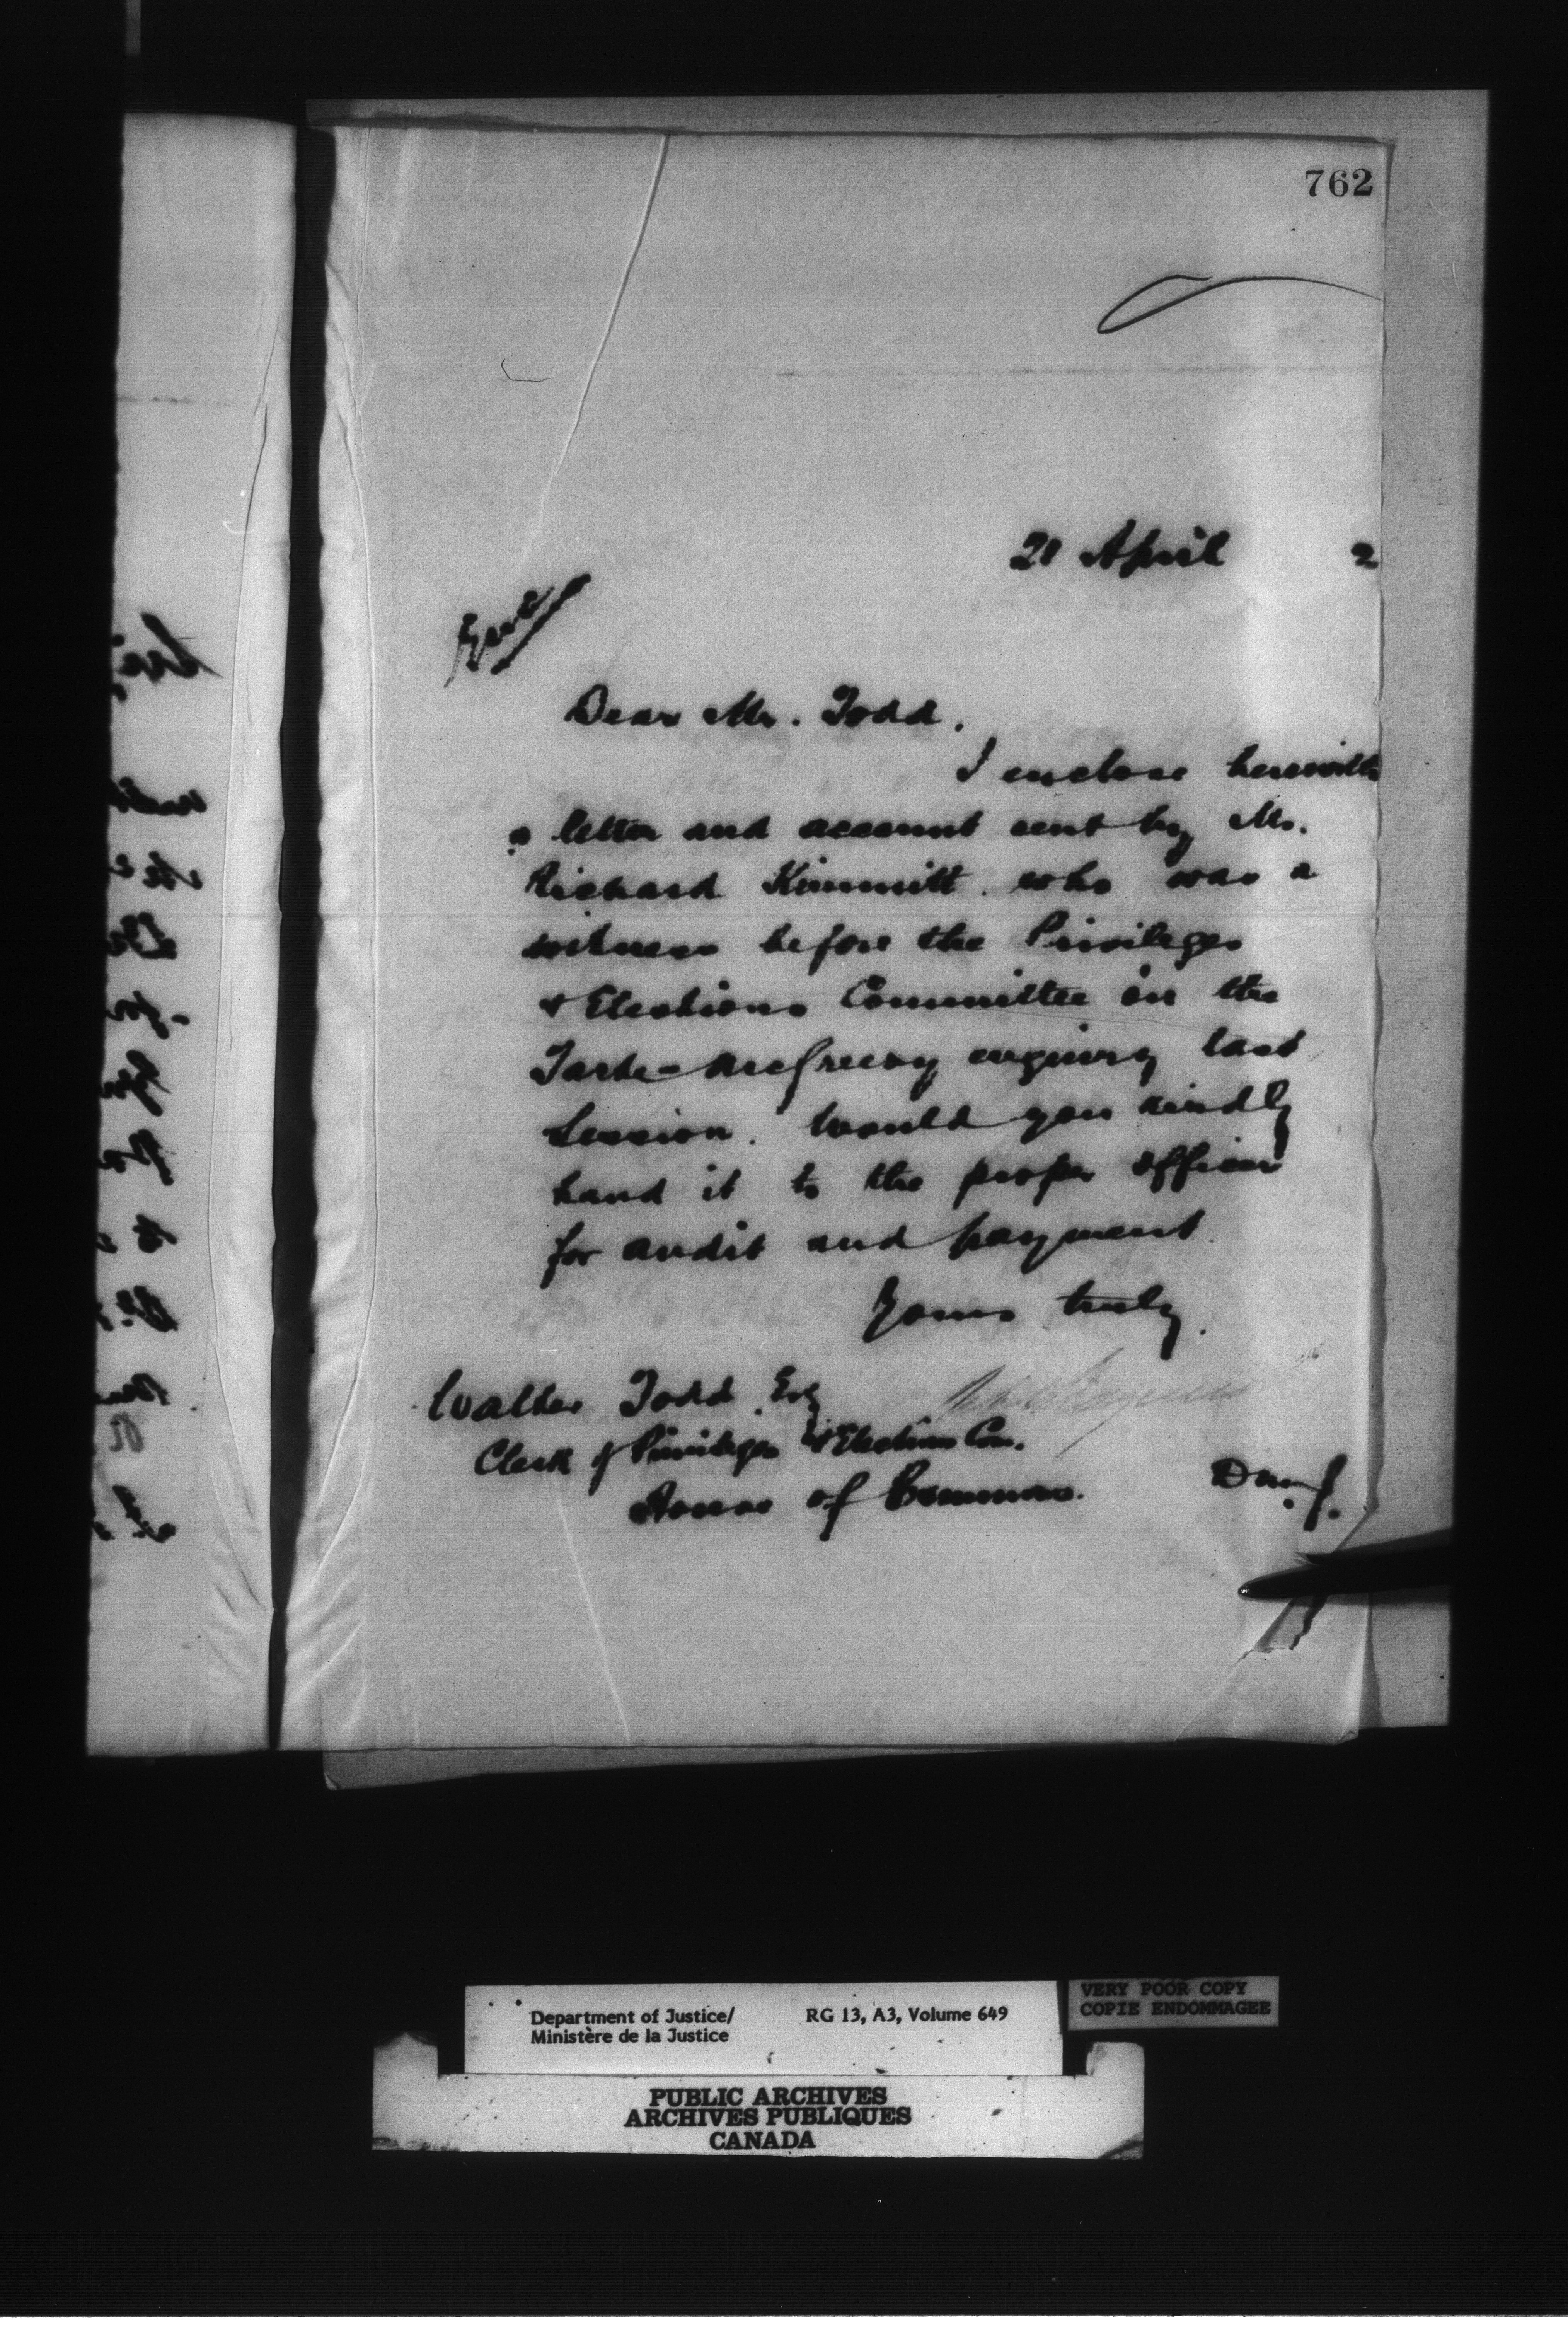 762
21 April 2
Dear Mr. Todd.
I enclose herewith
a letter and account sent by Mr.
Richard Kimmitt who was a
witness before the Privileges
& Elections Committee in the
Tarte-McGreevy enquiry last
Session. Would you kindly
hand it to the proper officer
for audit and payment.
Yours truly.
Walter Todd Esq
Clerk of Privileges & Elections Com.
House of Commons.
VERY POOR COPY
COPIE ENDOMMAGEE
Department of Justice/ RG 13, A3, Volume 649
Ministère de la Justice
PUBLIC ARCHIVES
ARCHIVES PUBLIQUES
CANADA